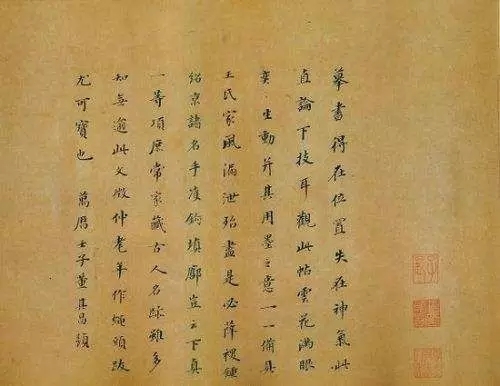 摹書得在位置失在神氣此
直論下技耳觀此帖雲花滿眼
奕〻生動并其用墨之意一一備具
王氏家風漏泄殆盡是必薛稷鍾
紹京諸名手雙鉤填廓豈云下真
一等項庶常家藏古人名跡雖多
知無逾此文徵仲老年作蠅頭跋
尤可寶也 萬曆壬子董其昌題